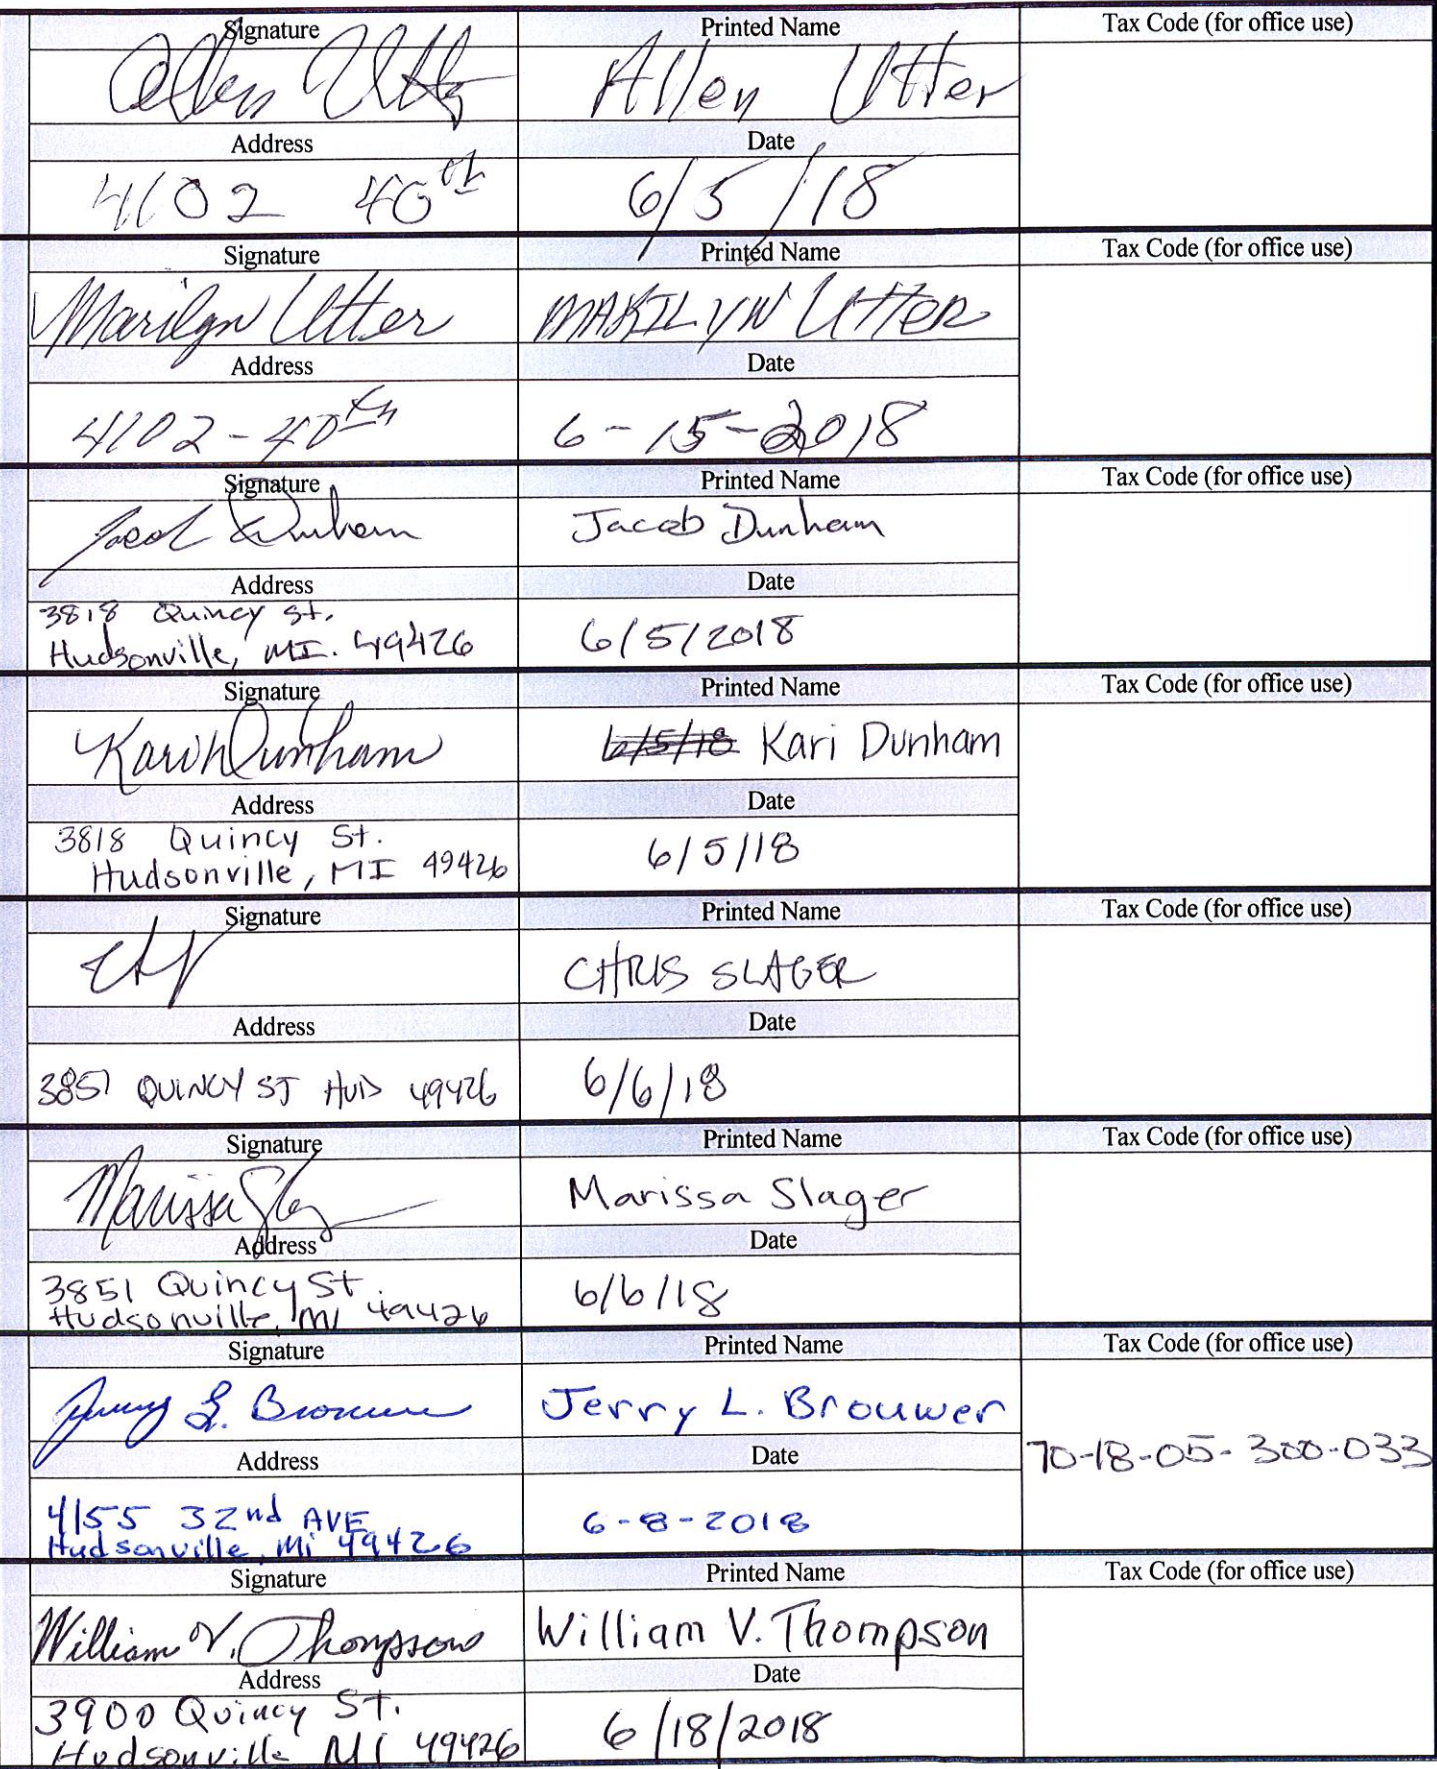 Signature Printed Name Tax Code (for office use)
Allen Utter Allen Utter
Address Date
4102 40th 6/5/18
Signature Printed Name Tax Code (for office use)
Marilyn Utter MARILYN Utter
Address Date
4102-40th 6-15-2018
Signature Printed Name Tax Code (for office use)
Jacob Dunham Jacob Dunham
Address Date
3818 Quincy St.
Hudsonville, MI. 49426 6/5/2018
Signature Printed Name Tax Code (for office use)
Kari Dunham 6/5/18 Kari Dunham
Address Date
3818 Quincy St.
Hudsonville, MI 49426 6/5/18
Signature Printed Name Tax Code (for office use)
CHRIS SLAGER
Address Date
3851 QUINCY ST HUD 49426 6/6/18
Signature Printed Name Tax Code (for office use)
Marissa Slager Marissa Slager
Address Date
3851 Quincy St.
Hudsonville, MI 49426 6/6/18
Signature Printed Name Tax Code (for office use)
Jerry L. Brouwer Jerry L. Brouwer
Address Date 70-18-05-300-033
4155 32nd AVE
Hudsonville, Mi 49426 6-8-2018
Signature Printed Name Tax Code (for office use)
William V. Thompson William V. Thompson
Address Date
3900 Quincy St.
Hudsonville MI 49426 6/18/2018